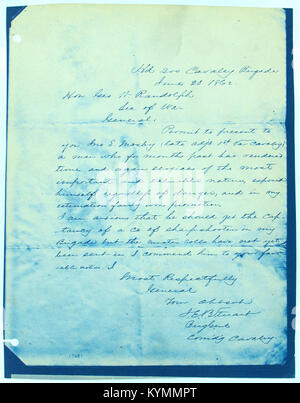 Hd Qrs Cavalry Brigade
June 20 1862
Hon Geo W Randolph
Sec of War
General:
Permit to present to
you Jno S. Mosby (late adjt 1st Va Cavalry)
a man who for months past has rendered
time and again services of the most
important and valuable nature, exposing
himself of danger, and in my
estimation fairly won promotion.
I am anxious that he should get the Cap
taincy of a co of sharpshooters in my
Brigade but the muster rolls have not yet
been sent in I commend him to your favor
Most Respectfully
General
Your obt
J E B Stuart
Brig Genl
Comdg Cavalry
alamy
Image ID: KYMMPT
www.alamy.com